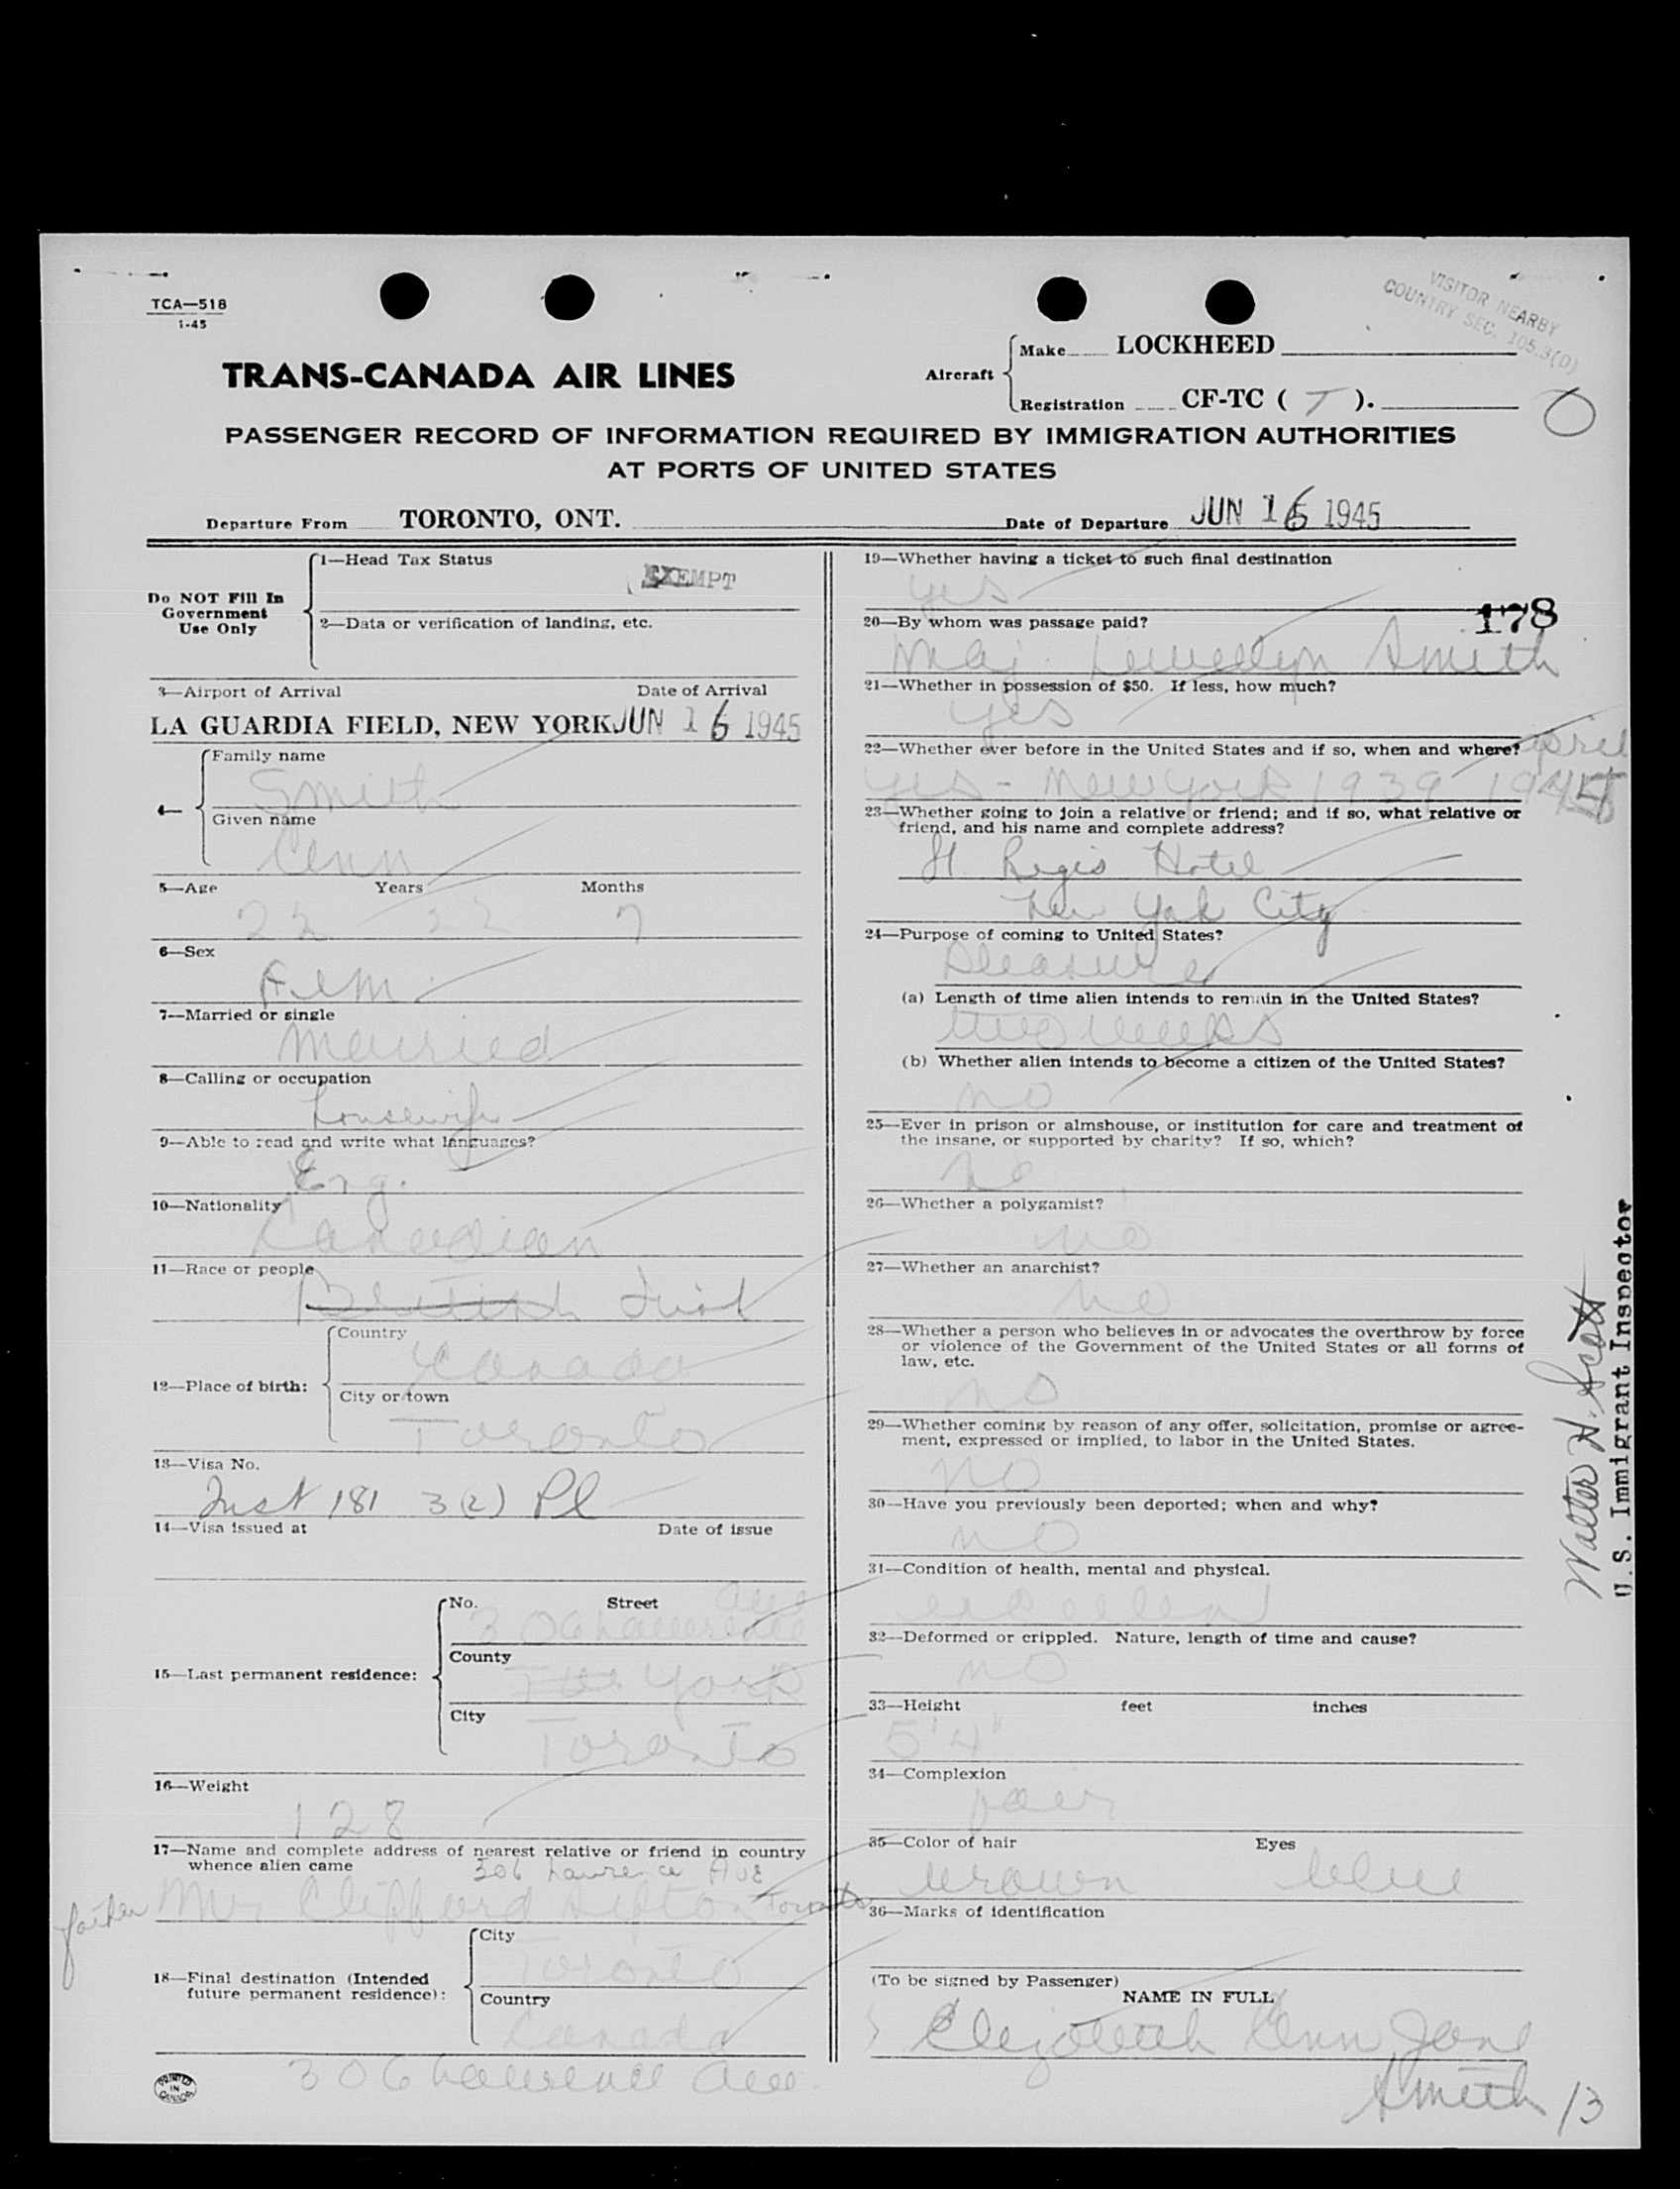 VISITOR NEARBY
COUNTRY SEC. 105.3(D)
TCA—518
1-45
TRANS-CANADA AIR LINES
Aircraft
Make LOCKHEED
Registration CF-TC ( T ).
PASSENGER RECORD OF INFORMATION REQUIRED BY IMMIGRATION AUTHORITIES
AT PORTS OF UNITED STATES
Departure From TORONTO, ONT. Date of Departure JUN 16 1945
Do NOT Fill In
Government
Use Only
1—Head Tax Status
EXEMPT
2—Data or verification of landing, etc.
3—Airport of Arrival Date of Arrival
LA GUARDIA FIELD, NEW YORK JUN 16 1945
4—
Family name
Smith
Given name
Ann
5—Age Years Months
22 22 7
6—Sex
Fem.
7—Married or single
Married
8—Calling or occupation
housewife
9—Able to read and write what languages?
Eng.
10—Nationality
Canadian
11—Race or people
British Irish
12—Place of birth:
Country
Canada
City or town
Toronto
13—Visa No.
Inst 181 3(2) Pl
14—Visa issued at Date of issue
15—Last permanent residence:
No. Street
306 Lawrence Ave
County
York
City
Toronto
16—Weight
128
17—Name and complete address of nearest relative or friend in country
whence alien came
306 Lawrence Ave
father Mr Clifford Sifton Toronto
18—Final destination (Intended
future permanent residence):
City
Toronto
Country
Canada
306 Lawrence Ave
PRINTED
IN
CANADA
19—Whether having a ticket to such final destination
yes
178
20—By whom was passage paid?
Maj. Llewellyn Smith
21—Whether in possession of $50. If less, how much?
yes
22—Whether ever before in the United States and if so, when and where?
April
yes - New York 1939 1945
23—Whether going to join a relative or friend; and if so, what relative or
friend, and his name and complete address?
St. Regis Hotel
New York City
24—Purpose of coming to United States?
Pleasure
(a) Length of time alien intends to remain in the United States?
two weeks
(b) Whether alien intends to become a citizen of the United States?
no
25—Ever in prison or almshouse, or institution for care and treatment of
the insane, or supported by charity? If so, which?
no
26—Whether a polygamist?
no
27—Whether an anarchist?
no
28—Whether a person who believes in or advocates the overthrow by force
or violence of the Government of the United States or all forms of
law, etc.
no
29—Whether coming by reason of any offer, solicitation, promise or agree-
ment, expressed or implied, to labor in the United States.
no
30—Have you previously been deported; when and why?
no
31—Condition of health, mental and physical.
excellent
32—Deformed or crippled. Nature, length of time and cause?
no
33—Height feet inches
5'4"
34—Complexion
fair
35—Color of hair Eyes
brown blue
36—Marks of identification
(To be signed by Passenger)
NAME IN FULL
Elizabeth Ann Jane
Smith 13
Walter H. Scott
U.S. Immigrant Inspector